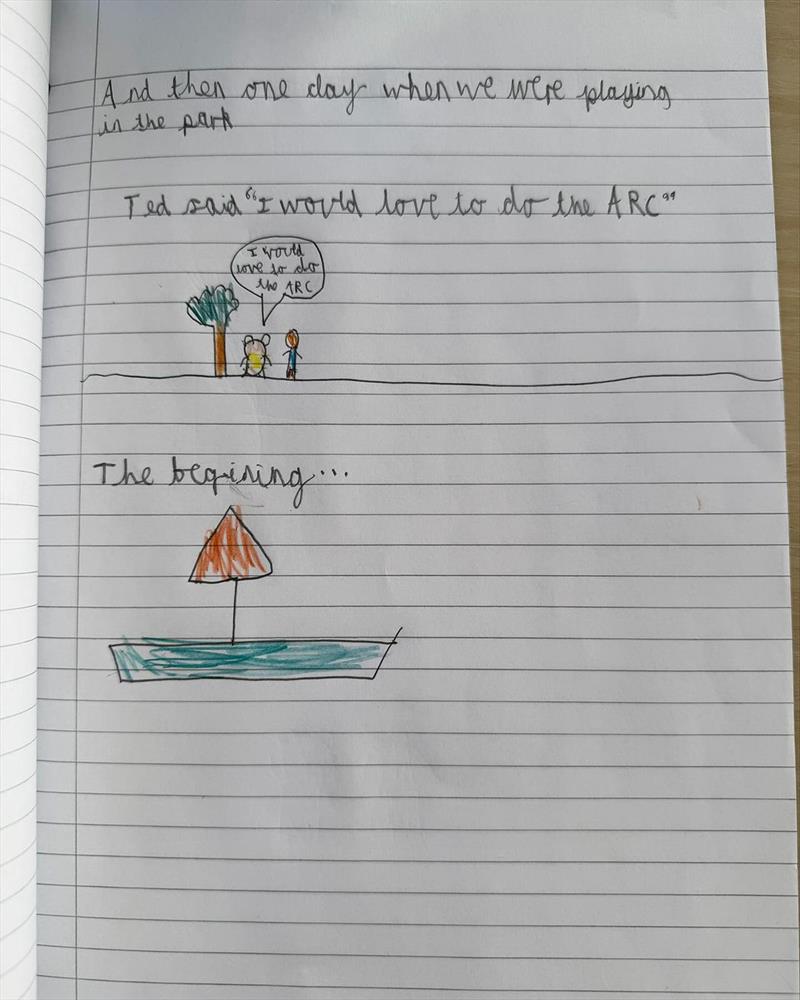 And then one day when we were playing
in the park
Ted said "I would love to do the ARC"
I would
love to do
the ARC
The begining...